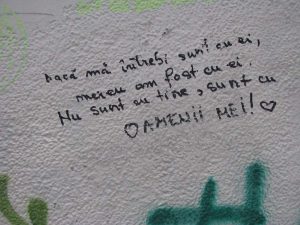 Dacă mă întrebi sunt cu ei,
mereu am fost cu ei.
Nu sunt cu tine, sunt cu
♡ OAMENII MEI! ♡